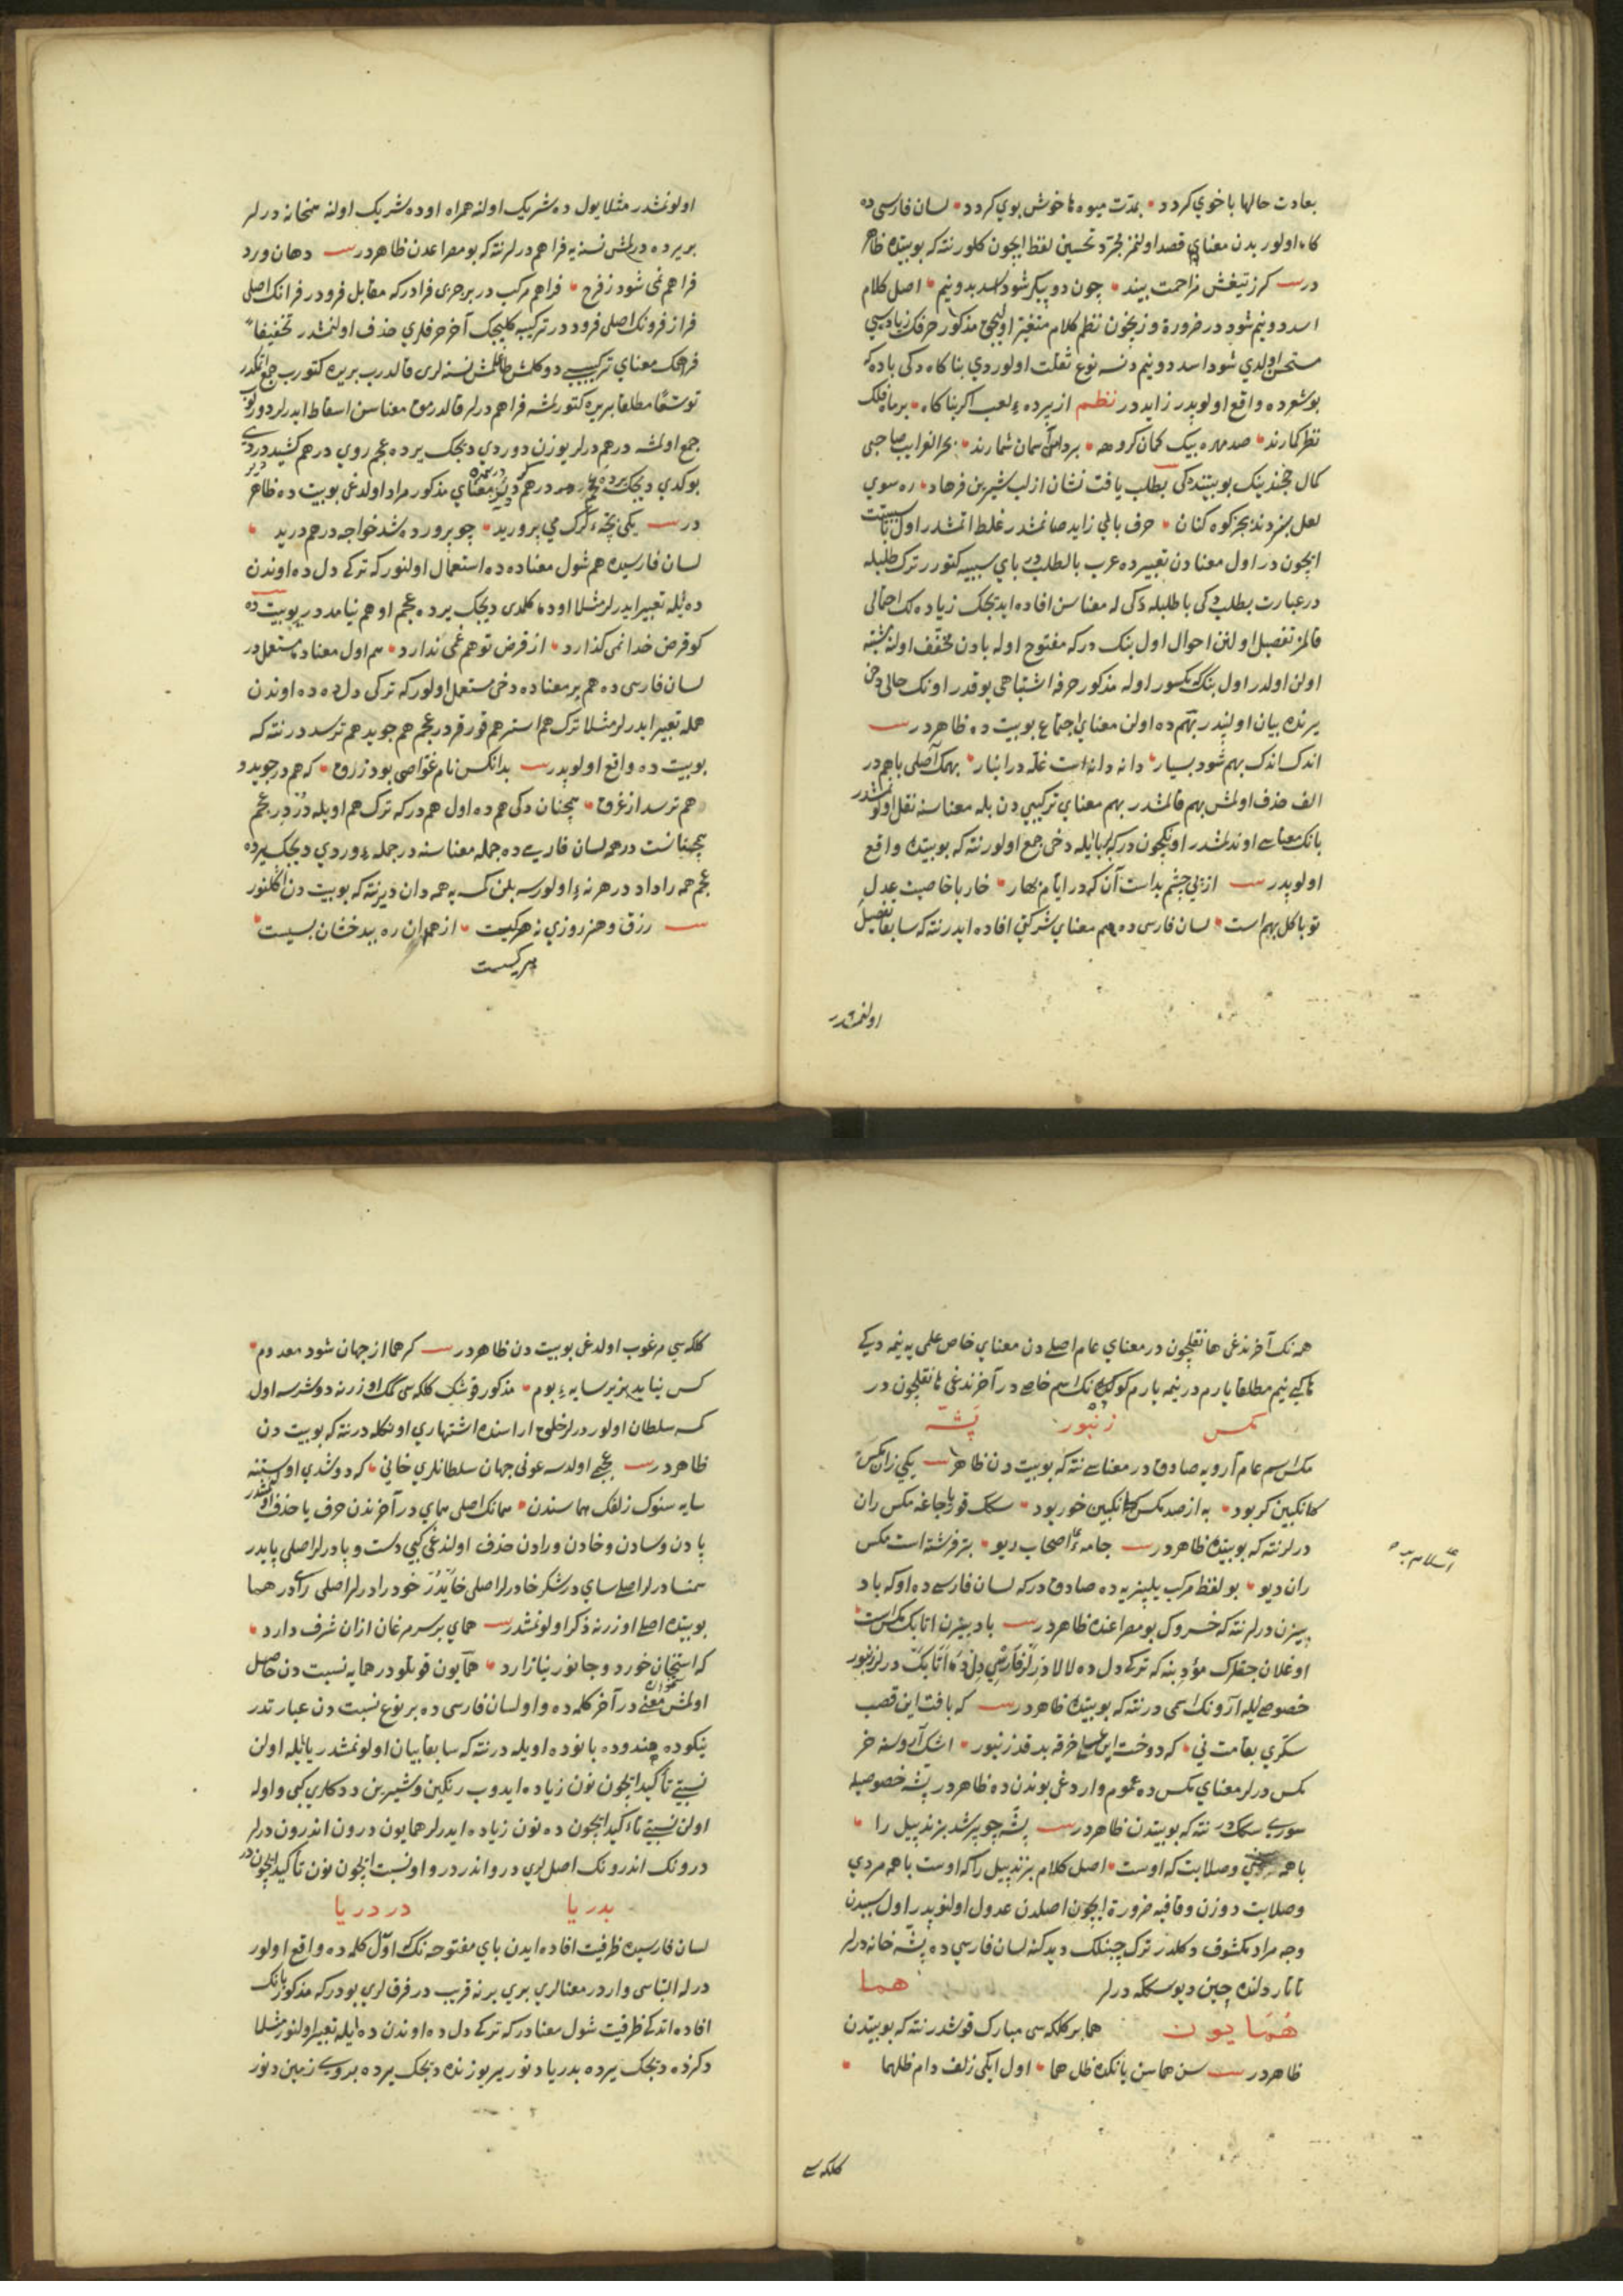 بعادت حالها با خوي كردد • بمدّت ميوه ها خوش بوي كردد • لسان فارسى ده
كاه اولور بدن معناي قصد اولنمز مجرّد تحسين لفظ ايچون كلور نته كه بو بيتده ظاهر
در كرز تيغش مزاحمت بيند • چون دو پيكر شود اسد بدو نيم • اصل كلام
اسد دو نيم شود در ضرورة وزنچون نظم كلام متغير اوليجق مذكور حرفك زياده سي
مستحسن اولدي شود اسد دو نيم دنسه نوع ثقلت اولوردي بناكاه دكى باده كه
بو شعرده واقع اولوبدر زايد در نظم از پرده لعب اكر بناكاه • بر ما فلك
نظر كمارند • صد مهره بيك كمان كروهه • بر آسمان شمارند • بحر الغرايب صاحبى
كمال خجندينك بو بيتنده كى بطلب يافت نشان از لب شيرين فرهاد • ره سوي
لعل نبردند بجز كوه كنان • حرف بايي زايد صانمشدر غلط اتمشدر اول با سببيت
ايچون در اول معنادن تعبيرده عرب بالطلب دير باي سببيه كتورر ترك طلبله
در عبارت بطلب دكى با طلبله دكى له معناسن افاده ايديجك زياده لك احتمالى
قالمز تفصيل اولنن احوال اول بنك در كه مفتوح اوله بادن مخفّف اولنه مشتبه
اولن اولدر اول بنك كه مكسور اوله مذكور حرفه اشتباهى يوقدر اونك حالى دخى
يرنده بيان اولنيدر بهم ده اولن معناي اجتماع بو بيت ده ظاهر در
اندك اندك بهم شود بسيار • دانه دانه است غلّه در انبار • بهمك اصلى باهم در
الف حذف اولمش بهم قالمشدر بهم معناي تركيبى دن بله معناسنه نقل اولنمشدر
بانك معناسى اوندلمشدر اونكچون در كه با ايله دخى جمع اولور نته كه بو بيتده واقع
اولوبدر از پى چشم بد است آن كه در ايام بهار • خار با خاصيت عدل
تو با كل بهم است • لسان فارسى ده هم معناي شركتى افاده ايدر نته كه سابقا تفصيل
اولنمشدر
اولونمشدر مثلا يول ده شريك اولنه همراه اوده شريك اولنه همخانه درلر
بر يرده درلمش نسنه يه فراهم درلر نته كه بو مصراعدن ظاهر در دهان ورد
فراهم نمى شود ز فرح • فراهم مركب در بر جزى فرا در كه مقابل فرو در فرانك اصلى
فراز فرونك اصلى فرود در تركيبه كليجك آخر حرفلرى حذف اولنمشدر تخفيفاً
فراهمك معناي تركيبى دوكلمش طاغلمش نسنه لرى قالدرب بر يره كتورب جمع اتمكدر
توسّعًا مطلقا بر يره كتورلمشه فراهم درلر قالدرمق معناسن اسقاط ايدرلر دورلوب
جمع اولمشه درهم درلر يوزن دوردي ديجك يرده عجم روي درهم كشيد در دى
بوكدي ديجك يرده در هم معناي مذكور مراد اولدغى بو بيت ده ظاهر
در يكى بچّه كرك مى پروريد • چو پرورده شد خواجه در هم دريد •
لسان فارسيده هم شول معناده ده استعمال اولنور كه تركى دل ده اوندن
ده ايله تعبير ايدرلر مثلا اوده كلمدى ديجك يرده عجم او هم نيامد در بو بيت ده
كو قرض خدا نمى كذارد • از قرض تو هم غمى ندارد • هم اول معناده مستعمل در
لسان فارسى ده هم بر معناده دخى مستعمل اولور كه تركى دل ده ده اوندن
همله تعبير ايدرلر مثلا ترك هم استر هم قورقر در عجم هم جويد هم ترسد در نته كه
بو بيت ده واقع اولوبدر بدانكس نام غوّاصى بود زرق • كه هم در جويد و
هم ترسد از غرق • همچنان دكى هم ده اول هم در كه ترك هم اويله در در عجم
همچنانست در همه لسان فارسى ده جمله معناسنه در جمله ويردي ديجك يرده
عجم همه را داد در هر نه اولورسه بلن كمسه يه همه دان ديرنته كه بو بيت دن اكلنور
رزق وهنر روزي نه هركيست • از همدان ره ببدخشان بسيست •
هركيست
همه نك آخرندغى ها نقلچون در معناي عام اصلى دن معناي خاص علمى يه نيمه ديكى
ها كبى نيم مطلقا يارم در نيمه يارم كوكلك اسم خاصى در آخرندغى ها نقلچون در
مكس زنبور پشّه
مكس اسم عام آرويه صادق در معناسى نته كه بو بيت دن ظاهر در يكى زان مكس
كانكبين كر بود • به از صد مكس كانكبين خور بود • سكك قوريجاغه مكس ران
درلر نته كه بو بيتده ظاهر در جامه اصحاب ديو • بتر فرشته است مكس
عليه السلام
ران ديو • بو لفظ مركب يلپزه يه ده صادق در كه لسان فارسى ده اوكه باد
بيزن درلر نته كه خسروك بو مصراعنده ظاهر در باد بيزن اتابك مكس است
اوغلان جقلرك مؤدبنه كه تركى دل ده لالا درلر فارسى دل ده اتابك درلر زنبور
خصوصيله آرونك اسمى در نته كه بو بيتده ظاهر در كه يافت اين قصب
سكّري بقامت نى • كه دوخت اين عسلى خرقه بر قد زنبور • اشك آروسنه خر
مكس درلر معناي مكس ده عموم واردغى بوندن ده ظاهر در پشّه خصوصيله
سوري سكك در نته كه بو بيتدن ظاهر در پشّه چو پر شد بزند پيل را •
با همه مردي وصلابت كه اوست • اصل كلام بزند پيل را كه اوست با همه مردي
وصلابت در وزن وقافيه ضرورة ايچون اصلدن عدول اولنوبدر اول سببدن
وجه مراد مكشوف دكلدر ترك جبنلك ديدكنه لسان فارسي ده پشّه خانه درلر
تاتار دلنده چبن ديوسكه درلر هما
هُمايون هما بر كلكه سى مبارك قوشدر نته كه بو بيتدن
ظاهر در سن هماسن يانكده ظل هما • اول ايكى زلف دام ظلهما •
كلكه سى
كلكه سي مرغوب اولدغى بو بيت دن ظاهر در كر هما از جهان شود معدوم •
كس نيايد بزير سايه بوم • مذكور قوشك كلكه سى كمك اوزرنه دوشرسه اول
كمسه سلطان اولور درلر خلق اراسنده اشتهاري اونكله در نته كه بو بيت دن
ظاهر در عجبمى اولدسه عونى جهان سلطانلري خانى • كه دوشدي اوستنه
سايه سنوك زلفك هماسندن • همانك اصلى هماي در آخرندن حرف يا حذف اولنمشدر
پا دن وسادن وخادن ورادن حذف اولندغى كبى دست وپا درلر اصلى پايدر
سمنسا درلر اصلى ساي در شكرخا درلر اصلى خايدر خودرا درلر اصلى راي در هما
بو بيتده اصلى اوزرنه ذكر اولونمشدر هماي بر سر مرغان ازان شرف دارد •
كه استخوان خورد و جانور نيازارد • همايون قوتلو در همايه نسبت دن حاصل
اولمش معنى در آخر كلمه ده واو لسان فارسى ده بر نوع نسبت دن عبارتدر
نيكوده هندوده بانوده اويله در نته كه سابقا بيان اولونمشدر يا ايله اولن
نسبتى تأكيد ايچون نون زياده ايدوب رنكين وشيرين ددكلري كبى واوله
اولن نسبتى تاكيد ايچون ده نون زياده ايدرلر همايون درون اندرون درلر
درونك اندرونك اصل لري در واندر در واو نسبت ايچون نون تأكيد ايچون در
بدريا در دريا
لسان فارسيده ظرفيت افاده ايدن باي مفتوحه نك اوّل كلمه ده واقع اولور
درله التباسى واردر معنالري بري برنه قريب در فرق لري بودر كه مذكور بانك
افاده اتدكى ظرفيت شول معنادر كه تركى دل ده اوندن ده ايله تعبير اولنور مثلا
دكزده ديجك يرده بدريا دنور ير يوزنده ديجك يرده بروي زمين دنور